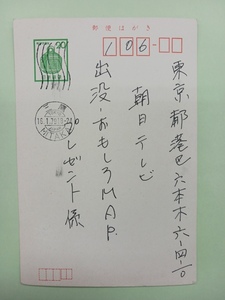 郵便はがき
106-
東京都港区六本木六-四-一〇
朝日テレビ
出没・おもしろMAP.
プレゼント様